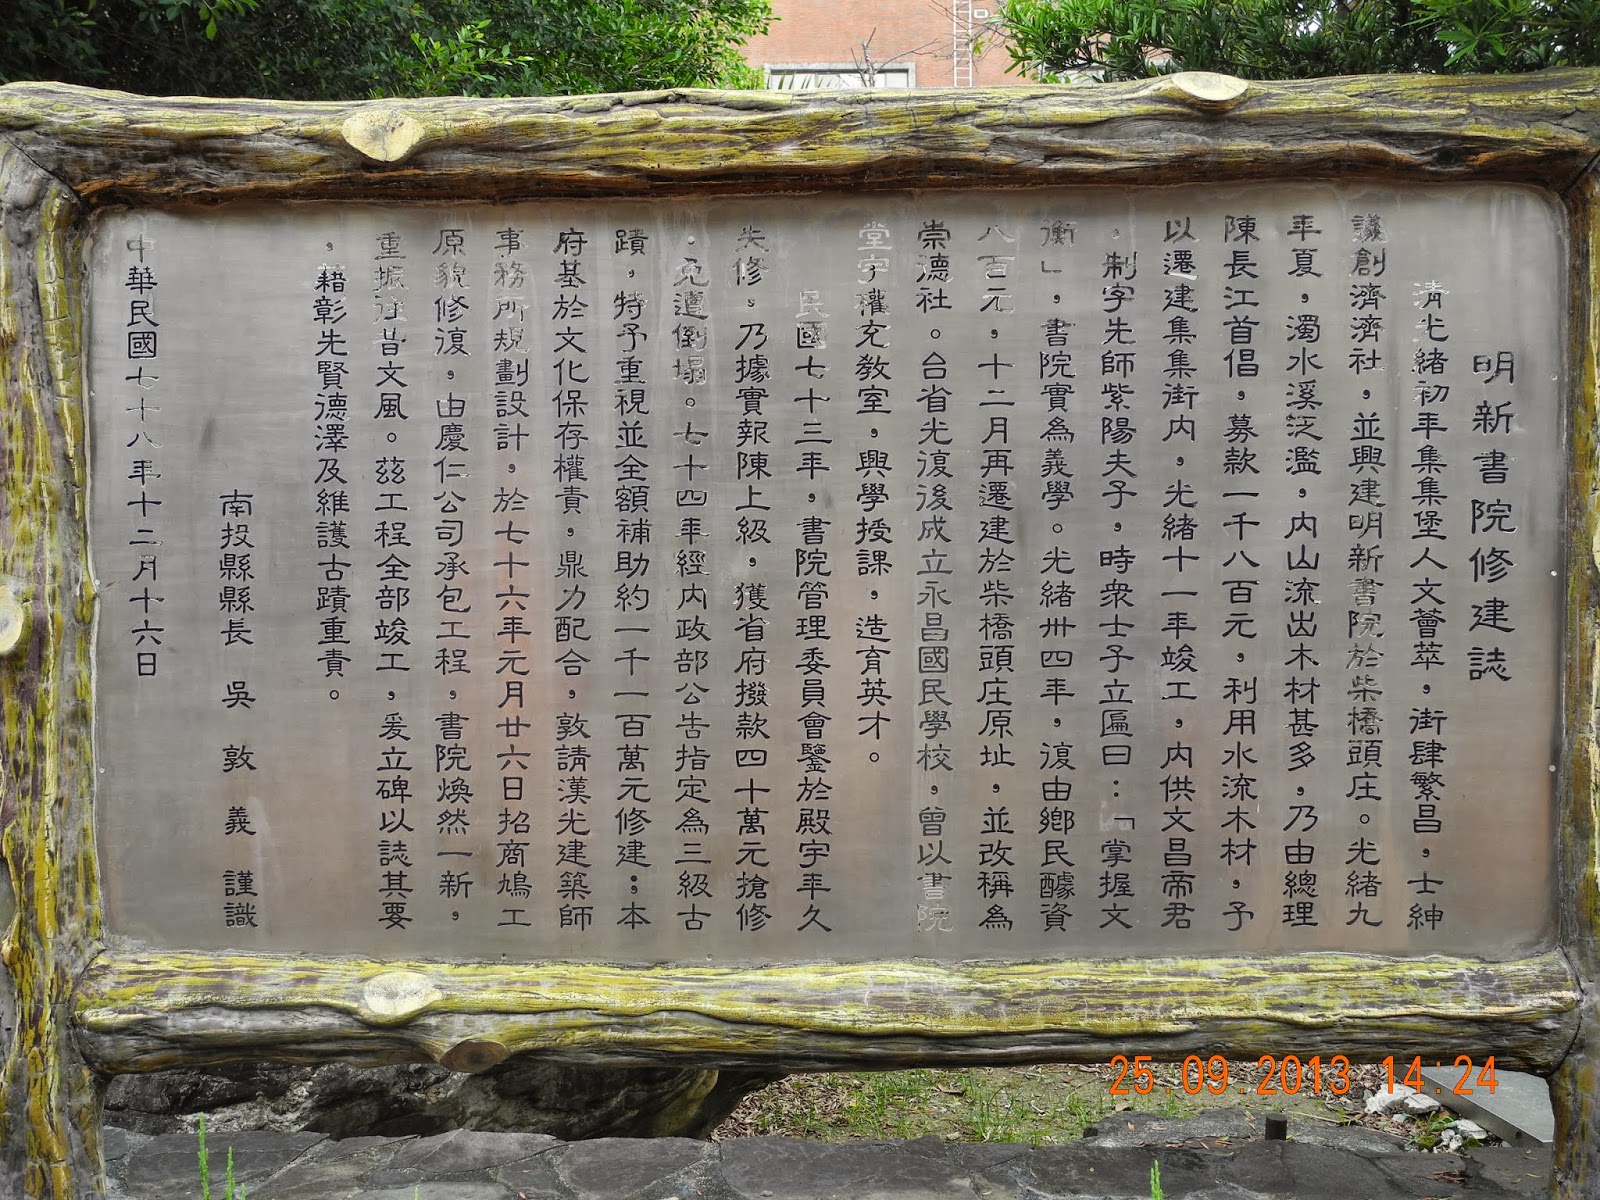 明新書院修建誌
清光緒初年集集堡人文薈萃，街肆繁昌，士紳
議創濟濟社，並興建明新書院於柴橋頭庄。光緒九
年夏，濁水溪泛濫，內山流出木材甚多，乃由總理
陳長江首倡，募款一千八百元，利用水流木材，予
以遷建集集街內，光緒十一年竣工，內供文昌帝君
，制字先師紫陽夫子，時衆士子立匾曰：「掌握文
衡」，書院實為義學。光緒卅四年，復由鄉民醵資
八百元，十二月再遷建於柴橋頭庄原址，並改稱為
崇德社。台省光復後成立永昌國民學校，曾以書院
堂宇權充教室，興學授課，造育英才。
民國七十三年，書院管理委員會鑒於殿宇年久
失修，乃據實報陳上級，獲省府撥款四十萬元搶修
，免遭倒塌。七十四年經內政部公告指定為三級古
蹟，特予重視並全額補助約一千一百萬元修建；本
府基於文化保存權責，鼎力配合，敦請漢光建築師
事務所規劃設計，於七十六年元月廿六日招商鳩工
原貌修復，由慶仁公司承包工程，書院煥然一新，
重振往昔文風。茲工程全部竣工，爰立碑以誌其要
，藉彰先賢德澤及維護古蹟重責。
南投縣縣長 吳 敦 義 謹識
中華民國七十八年十二月十六日
25.09.2013 14:24